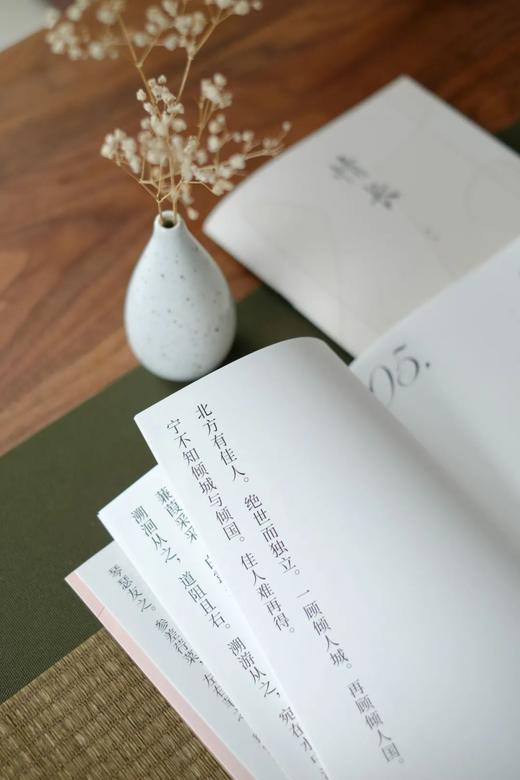 05.
北方有佳人。绝世而独立。一顾倾人城。再顾倾人国。
宁不知倾城与倾国。佳人难再得。
蒹葭采采
溯洄从之，道阻且右。溯游从之，宛在水
琴瑟友之。参差荇菜，左右